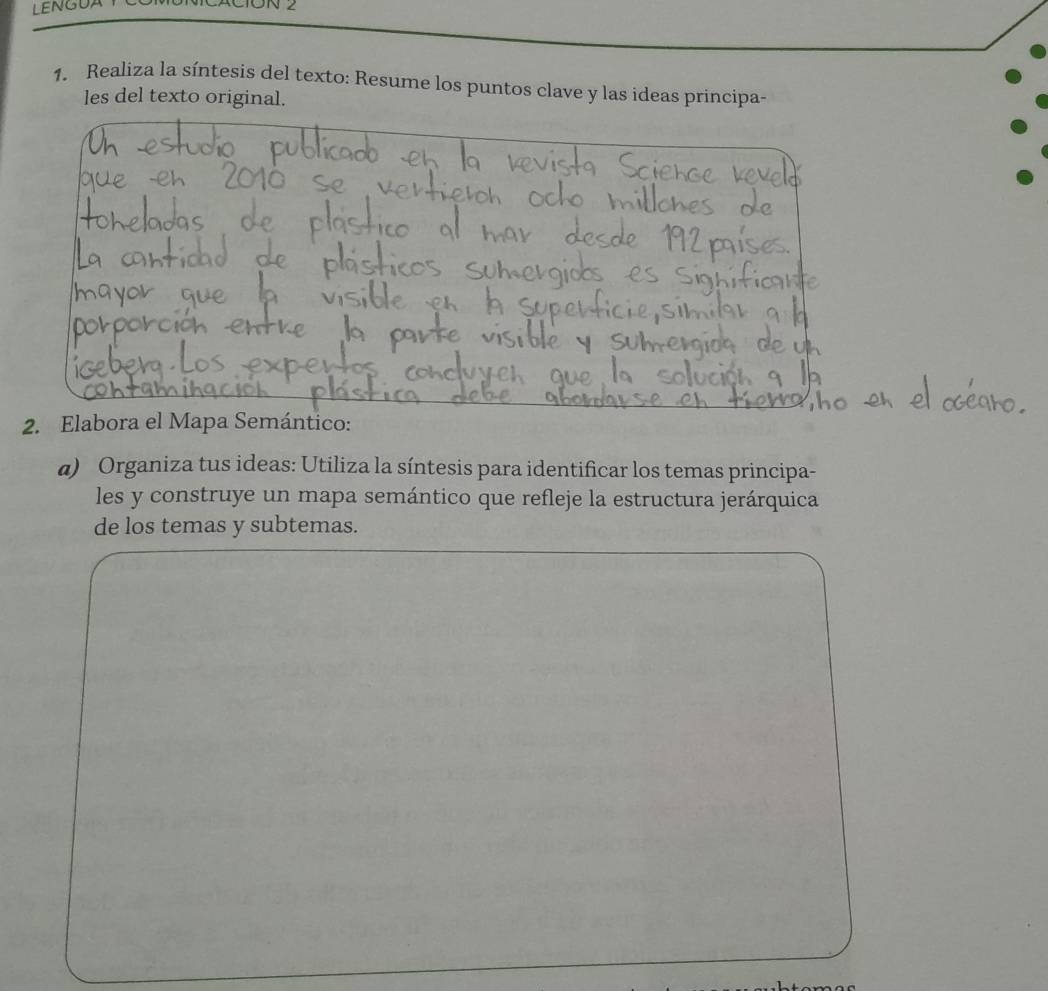 LENGUA Y COMUNICACIÓN 2
1. Realiza la síntesis del texto: Resume los puntos clave y las ideas principa-
les del texto original.
Un estudio publicado en la revista Science reveló
que en 2010 se vertieron ocho millones de
toneladas de plástico al mar desde 192 países.
La cantidad de plásticos sumergidos es significante
mayor que la visible en la superficie, similar a la
porporción entre la parte visible y sumergida de un
iceberg. Los expertos concluyen que la solución a la
contaminación plástica debe abordarse en tierra, no en el océano.
2. Elabora el Mapa Semántico:
a) Organiza tus ideas: Utiliza la síntesis para identificar los temas principa-
les y construye un mapa semántico que refleje la estructura jerárquica
de los temas y subtemas.
subtemas